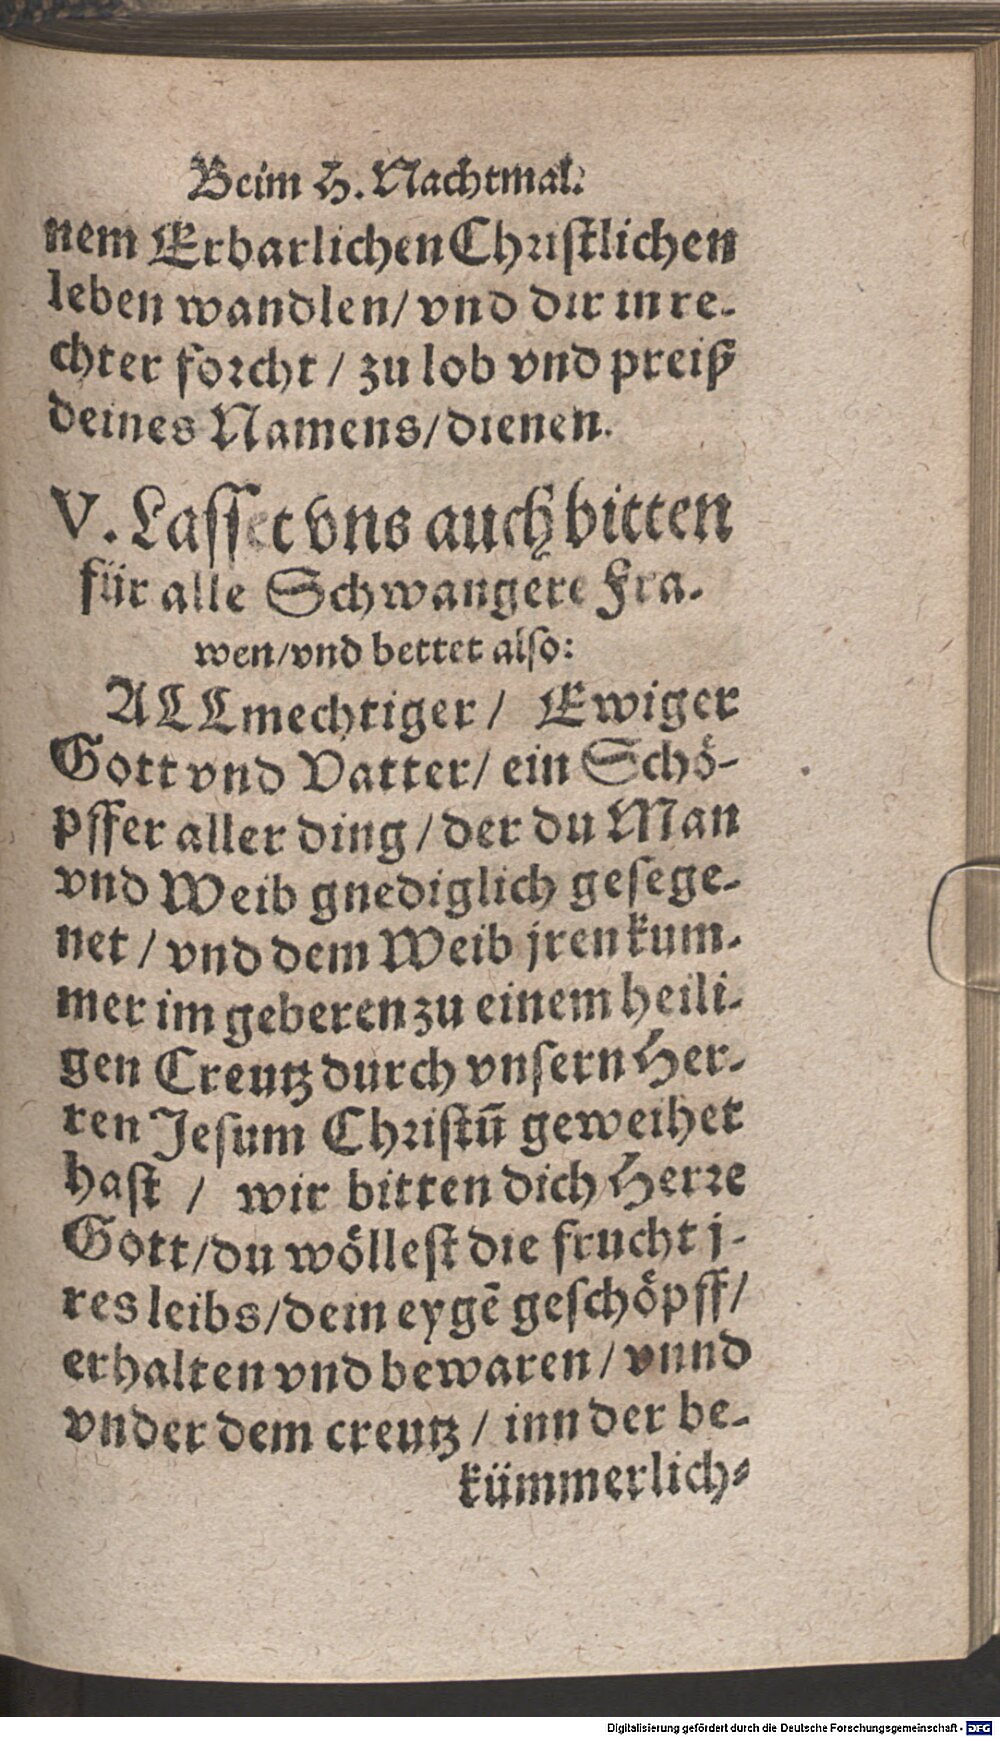 Beim H. Nachtmal.
nem Erbarlichen Christlichen
leben wandlen/ vnd dir in re-
chter forcht / zu lob vnd preiß
deines Namens/ dienen.
V. Lasset vns auch bitten
für alle Schwangere Fra-
wen/vnd bettet also:
ALLmechtiger / Ewiger
Gott vnd Vatter/ ein Schö-
pffer aller ding / der du Man
vnd Weib gnediglich gesege-
net / vnd dem Weib jren kum-
mer im geberen zu einem heili-
gen Creutz durch vnsern Her-
ren Jesum Christū geweihet
hast / wir bitten dich Herre
Gott/du wöllest die frucht j-
res leibs/dein eygē geschöpff/
erhalten vnd bewaren / vnnd
vnder dem creutz / inn der be-
kümmerlich-
Digitalisierung gefördert durch die Deutsche Forschungsgemeinschaft - DFG